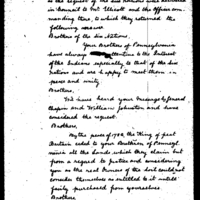 to the request of the Six Nations was delivered
in Council to Mr. Ellicott and the Officer com-
manding there, to which they returned the
following answer
Brothers of the Six Nations,
Your Brothers of Pennsylvania
have always attentive to the Interest
of the Indians especially to that of the Six
Nations and are happy to meet them in
peace and unity
Brothers,
We have heard your message by
Chapin and William Johnston and have
considered the request.
Brothers,
In the peace of 1782, the King of great
Britain ceded to your Brothers of Pennsyl
vania all the lands which they claim but
from a regard to justice and considering
you as the real owners of the soil could not
consider themselves as entitled but until
fairly purchased from yourselves
Brothers